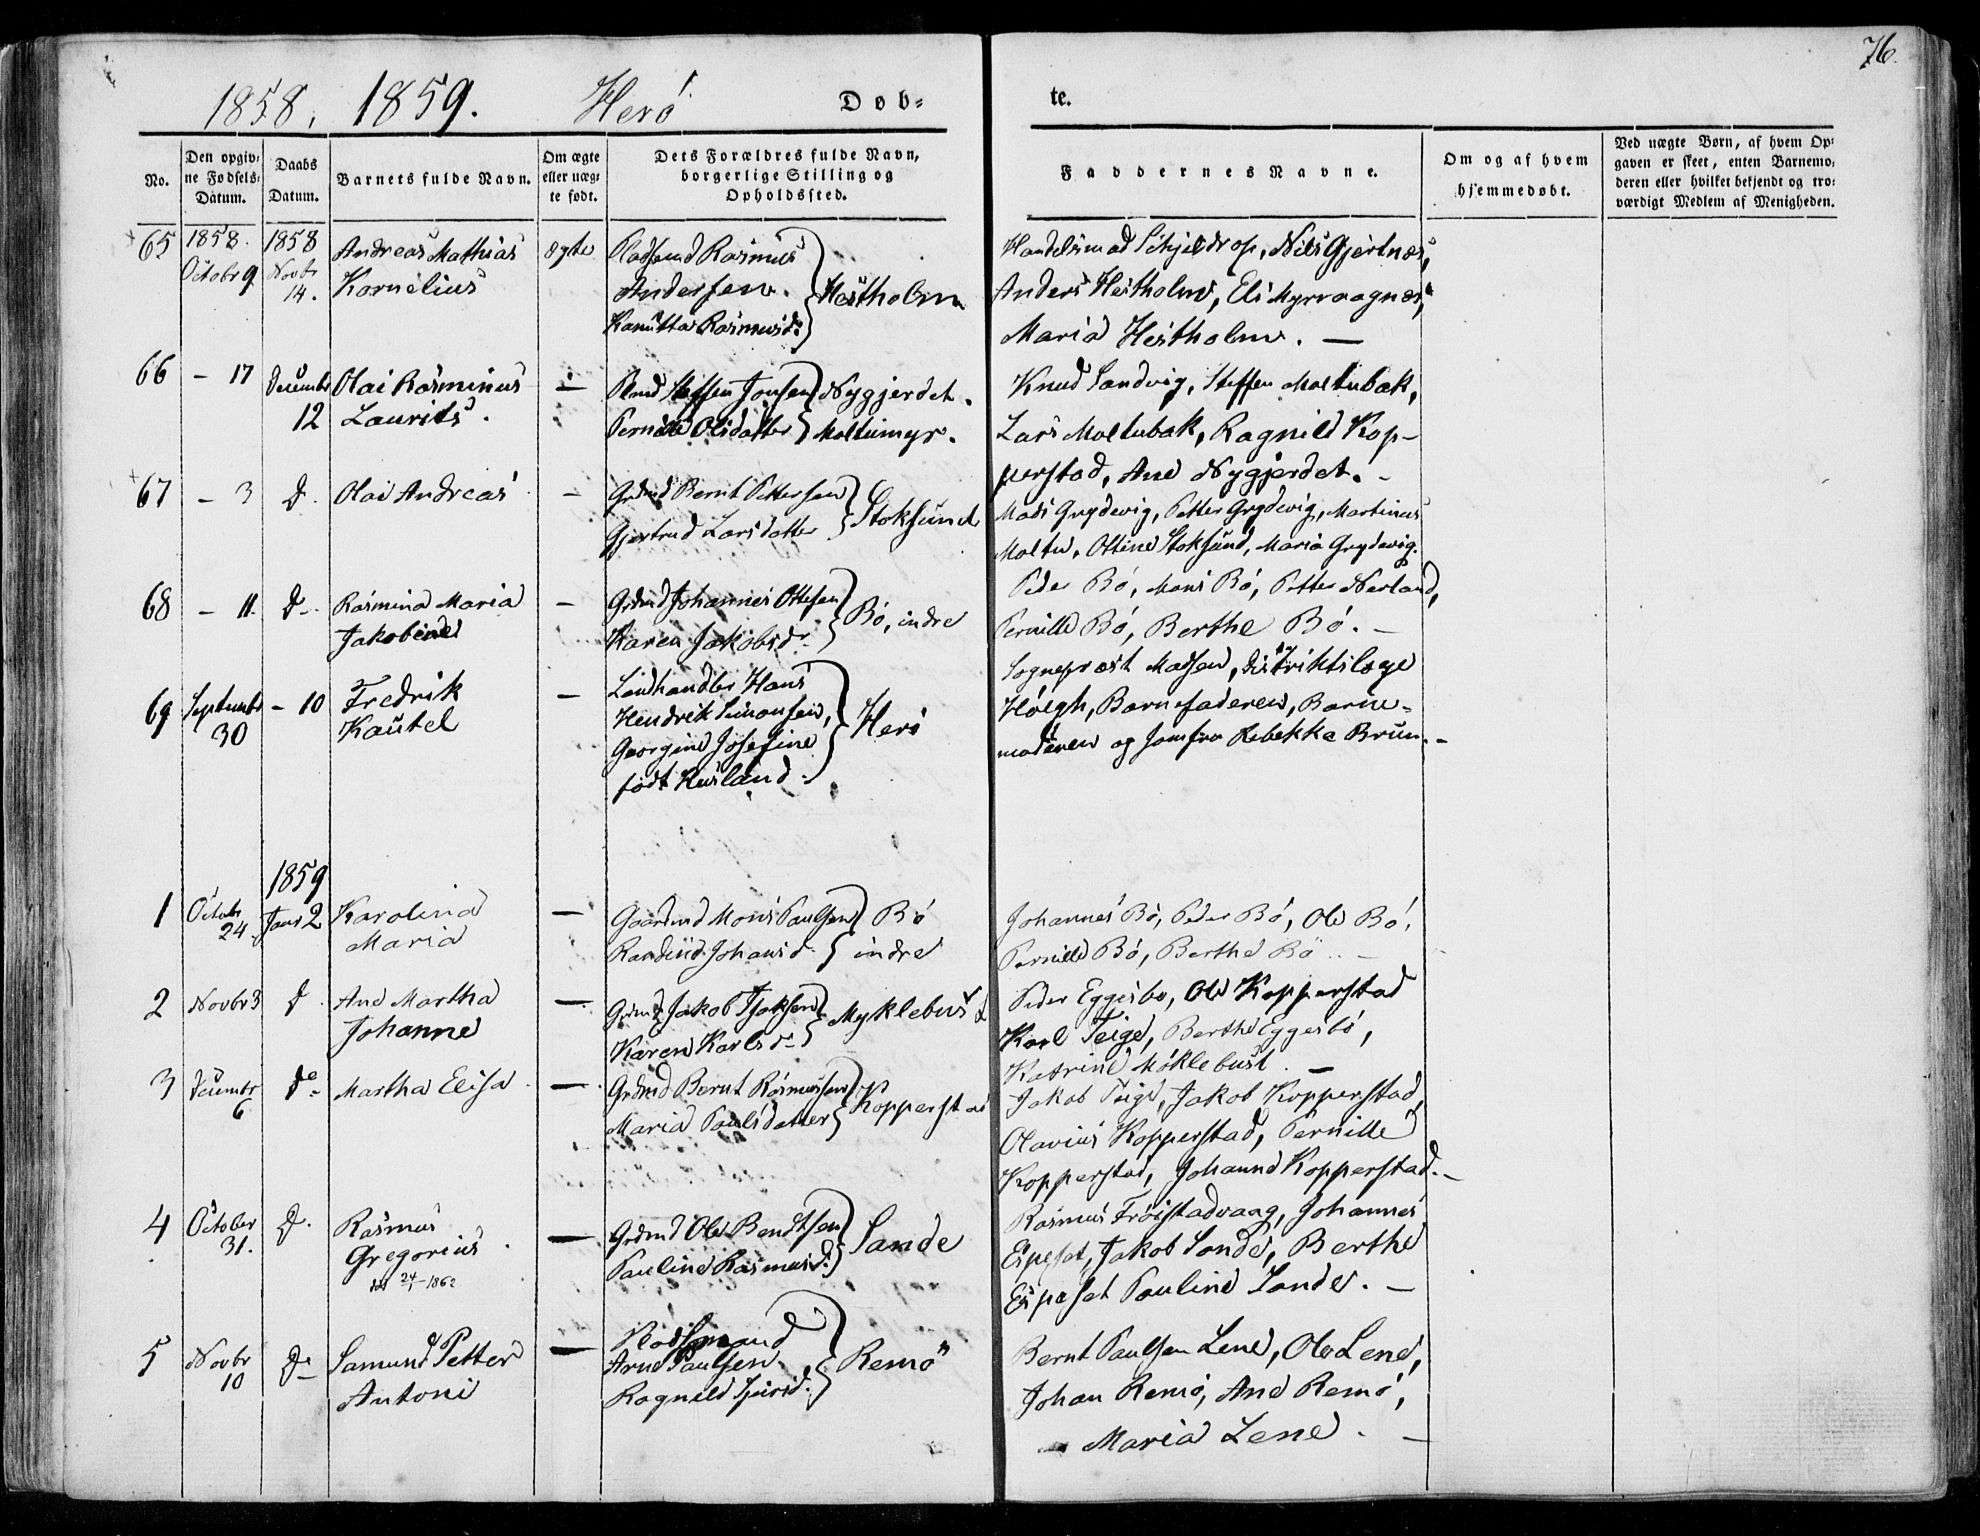 76.
1858, 1859. Herö Døb= te.
No.
Den opgiv=
ne Fødsels=
Datum.
Daabs
Datum.
Barnets fulde Navn.
Om ægte
eller uæg=
te født.
Dets Forældres fulde Navn,
borgerlige Stilling og
Opholdssted.
Faddernes Navne.
Om og af hvem
hjemmedøbt.
Ved uægte Børn, af hvem Op=
gaven er skeet, enten Barnemo=
deren eller hvilket bekjendt og tro=
værdigt Medlem af Menigheden.
65
1858.
Octobr 9
1858
Novbr
14.
Andreas Mathias
Kornelius
ægte
Pladsmd Rasmus
Andersen.
Kanutta Rasmusd.
Hestholm
Handelsmad Schjeldrop, Nils Gjertnes,
Anders Hestholm, Eli Myrvaagnes,
Maria Hestholm. —
66
- 17
Decembr
12
Olai Rasminus
Laurits.
—
Plmd Steffen Jonsen
Pernille Olsdatter
Nygjerdet.
Moltumyr.
Knud Sandvig, Steffen Moltubak,
Lars Moltubak, Ragnild Kop-
perstad, Ane Nygjerdet. -
67
- 3
d.
Olai Andreas
—
Grdmd Bernt Pettersen
Gjertrud Larsdatter
Stoksund
Mads Grydevig, Petter Grydevig, Martinus
Moltu, Ottine Stoksund, Maria Grydevig.
68
- 11.
d.
Rasmina Maria
Jakobine
—
Grdmd Johannes Ottesen
Karen Jakobsdr
Bö, indre
Peder Bö, Mons Bö, Petter Nerland,
Pernille Bö, Berthe Bö. -
69
Septembr
30
- 10
Fredrik
Kautel
—
Landhandler Hans
Hendrik Simonsen,
Georgine Josefine
födt Husland.
Herö
Sognepræst Madsen, Distriktslæge
Höegh, Barnefaderen, Barne=
moderen og Jomfru Rebekka Brun. -
1859
1
Octobr
24
Janr 2
Karolina
Maria
—
Gaardmd Mons Paulsen
Randine Johansd.
Bö
indre
Johannes Bö, Peder Bö, Ole Bö,
Pernille Bö, Berthe Bö. -
2
Novbr 3
d
Ane Martha
Johanne
—
Grdmd Jakob Isaksen
Karen Karlsd-
Myklebust
Peder Eggesbø, Ole Kopperstad
Karl Teige, Berthe Eggesbö,
Katrine Möklebust. —
3
Decembr
6
do-
Martha Elisa
—
Grdmd Bernt Rasmussen
Maria Paulsdatter
Kopperstad
Jakob Teige, Jakob Kopperstad,
Olavius Kopperstad, Pernille
Kopperstad, Johanne Kopperstad. -
4
October
31.
d.
Rasmus
Gregorius
24 - 1862
—
Grdmd Ole Bendtsen
Pauline Rasmusd.
Sande
Rasmus Fröistadvaag, Johannes
Espeset, Jakob Sande, Berthe
Espeset Pauline Sande. —
5
Novbr
10
d-
Samund Petter
Antoni
—
Pladsmand
Arne Paulsen.
Remö
Bernt Paulsen Lene, Ole Lene,
Johan Remö, Ane Remö,
Maria Lene. —